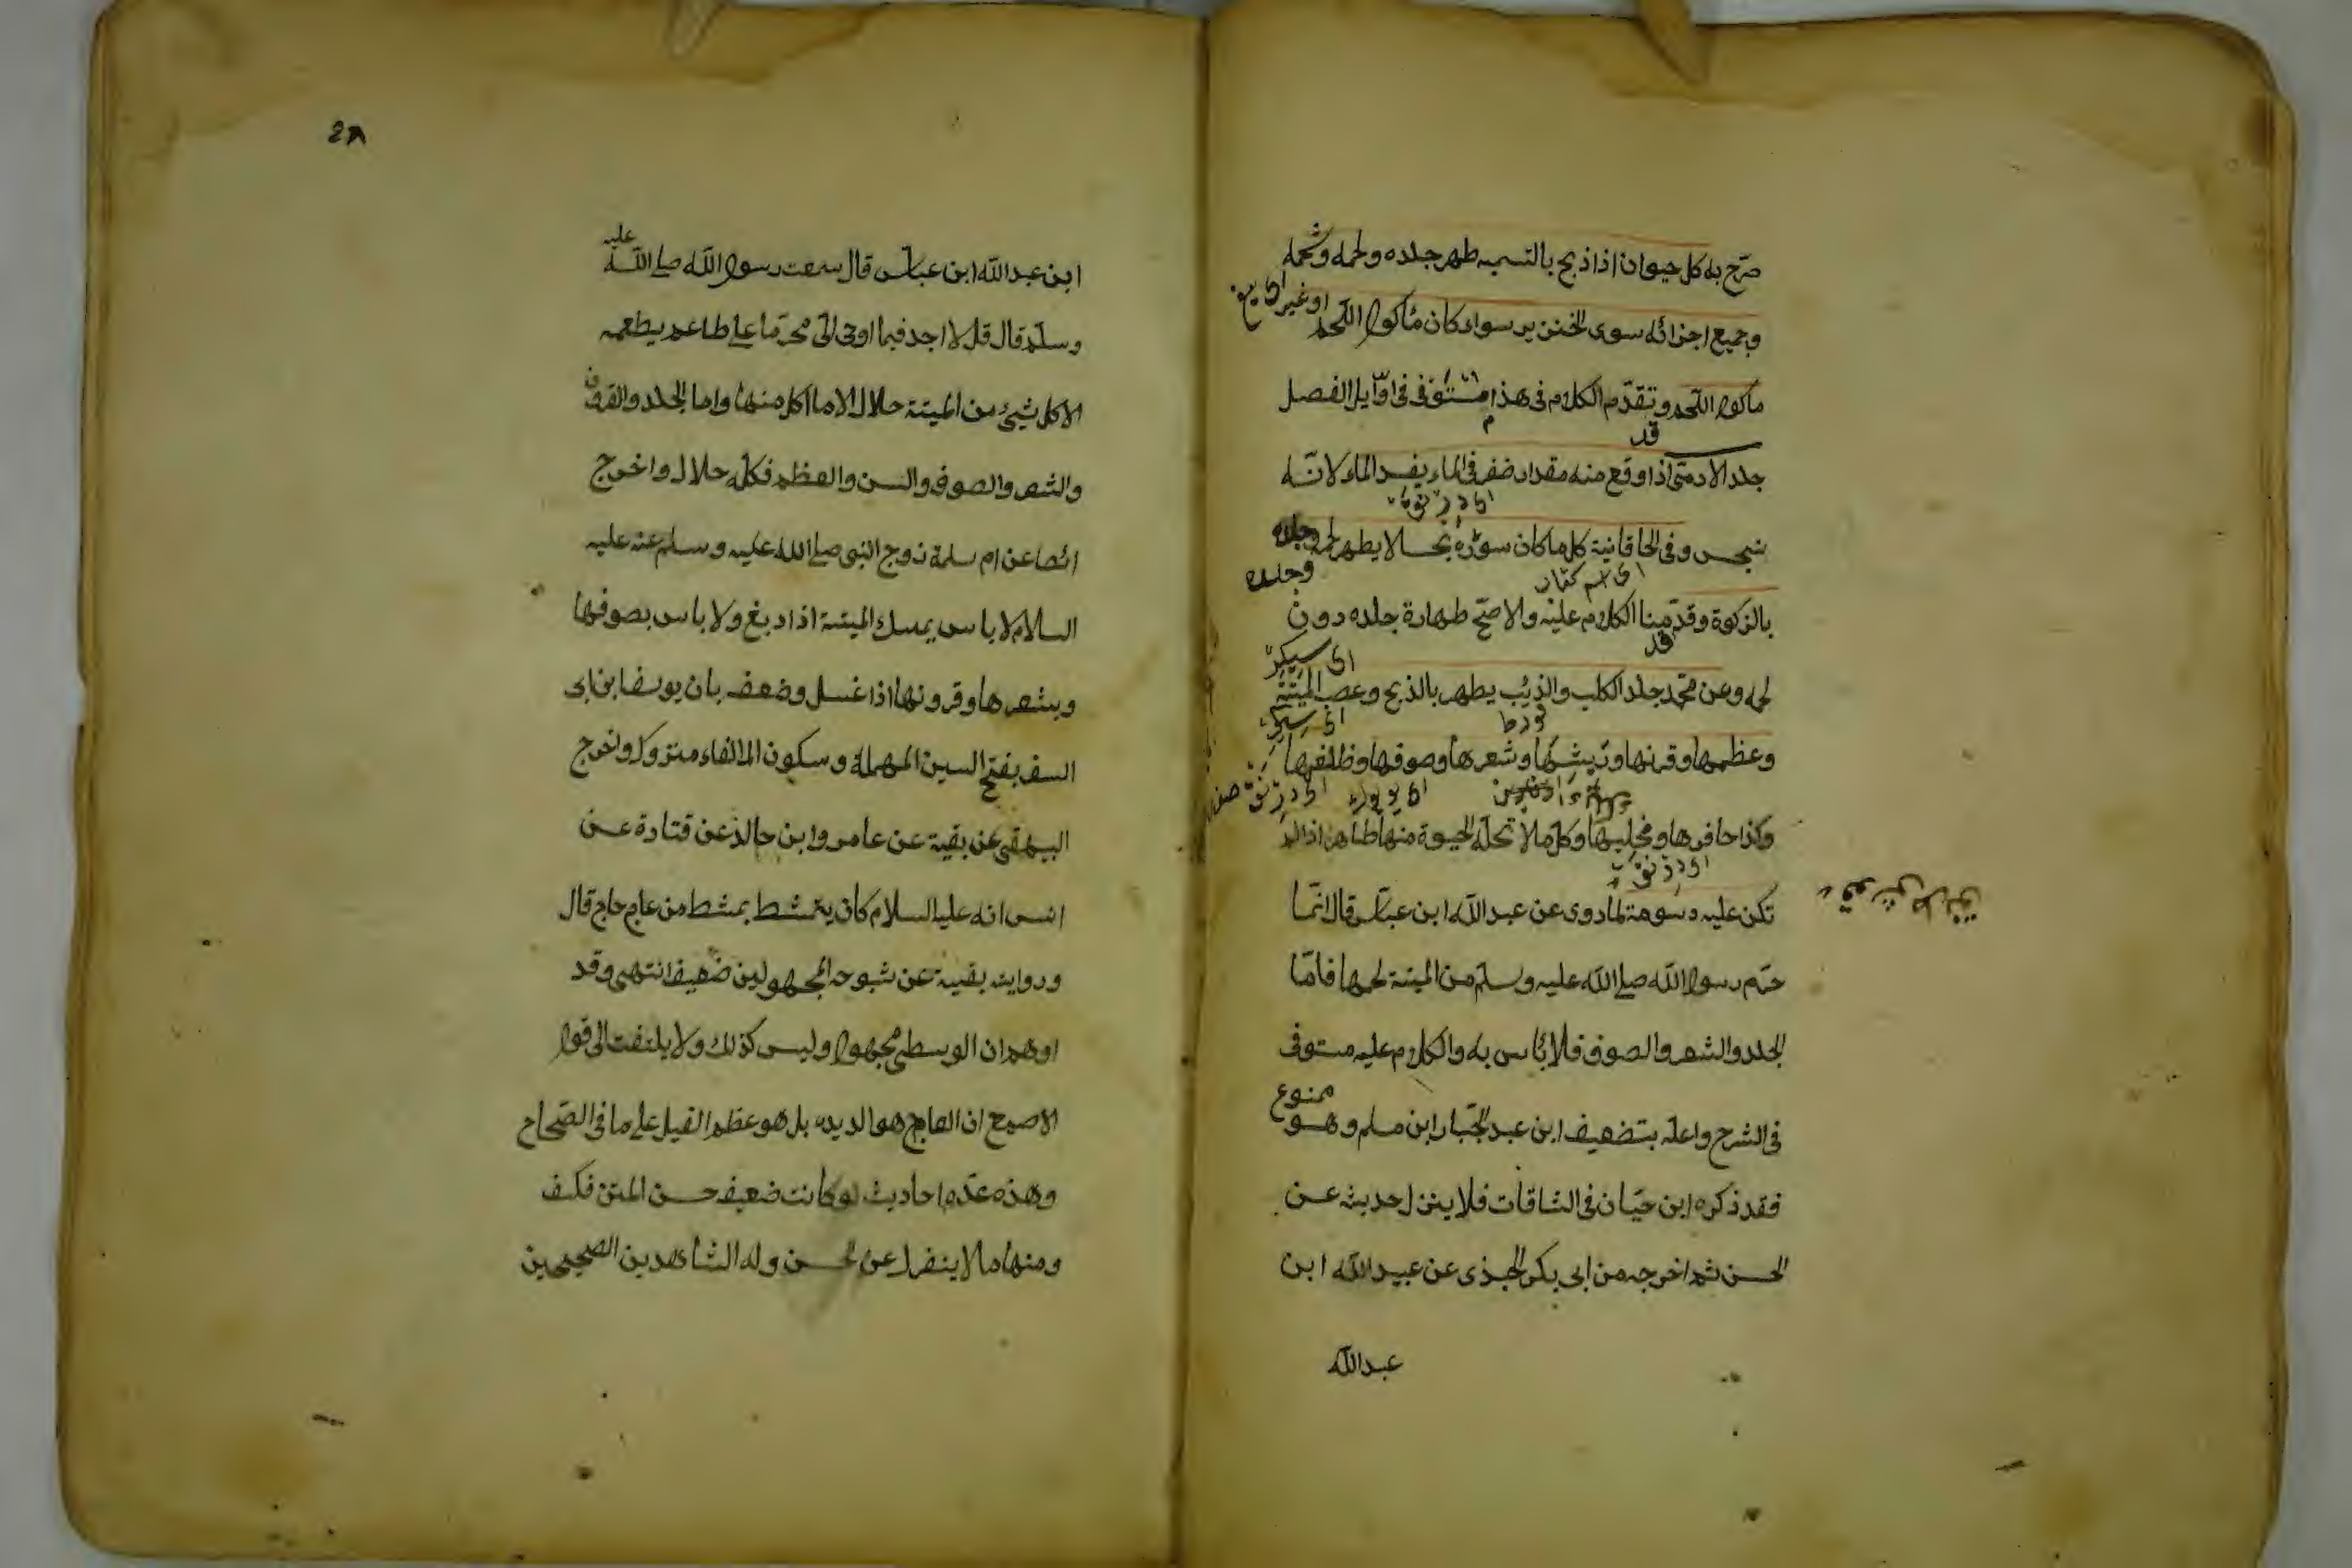 صرّح به كل حيوان اذا ذبح بالتسميه طهر جلده ولحمه وشحمه
وجميع اجزائه سوى الخنزير سواء كان مأكول اللحم او غير
ماكول اللحم وتقدّم الكلام فى هذا مستوفى فى اوّايل الفصل
قد
جلد الادمىّ اذا وقع منه مقدار ظفر فى الماء يفسد الماء لانّه
نجس وفى الخاقانية كل ما كان سؤره نجسا لا يطهر لحمه وجلده
وجلده
بالزكوة وقدّمنا الكلام عليه والاصحّ طهارة جلده دون
قد
لحمه وعن محمّد جلد الكلب والذئب يطهر بالذبح وعصب الميتة
وعظمها وقرنها وريشها وشعرها وصوفها وظلفها
وكذا حافرها ومخلبها وكل ما لا تحلّه الحيوة منها طاهر اذا لم
تكن عليه دسومة لما روى عن عبد الله ابن عبّاس قال انّما
حرّم رسول الله صلى الله عليه وسلّم من الميتة لحمها فامّا
الجلد والشعر والصوف فلا بأس به والكلام عليه مستوفى
فى الشرح واعلّه بتضعيف ابن عبد الجبّار ابن مسلم وهو ممنوع
فقد ذكره ابن حبّان فى الثاقات فلا ينزل حديثه عن
الحسن ثم اخرجه من ابى بكر الهذى عن عبيد الله ابن
عبد الله
28
ابن عبد الله ابن عباس قال سمعت رسول الله صلى الله عليه
وسلّم قال قل لا اجد فيما اوحى الىّ محرّما على طاعم يطعمه
الا كل شيئ من الميتة حلال الا ما اكل منها واما الجلد والقرون
والشعر والصوف والسن والعظم فكلّه حلال واخرج
ائضا عن ام سلمة زوج النبى صلى الله عليه وسلم عنه عليه
السلام لا باس بمسك الميتة اذا دبغ ولا باس بصوفها
وبشعرها وقرونها اذا غسل وضعفه بان يوسف ابن ابى
السفر بفتح السين المهملة وسكون الفاء متروك واخرج
البيهقى عن بقية عن عامر وابن خالد عن قتادة عن
انس انه عليه السلام كان يتمشط بمشط من عاج حاج قال
ورواية بقية عن شيوخه المجهولين ضعيف انتهى وقد
اوهم ان الوسطى مجهول وليس كذلك ولا يلتفت الى قول
الاصمع ان العاج هو الديده بل هو عظم الفيل على ما فى الصّحاح
وهذه عدّه احاديث لو كانت ضعيف حسن المتن فكيف
ومنها ما لا ينفرل عن الحسن وله الشاهدين الصحيحين